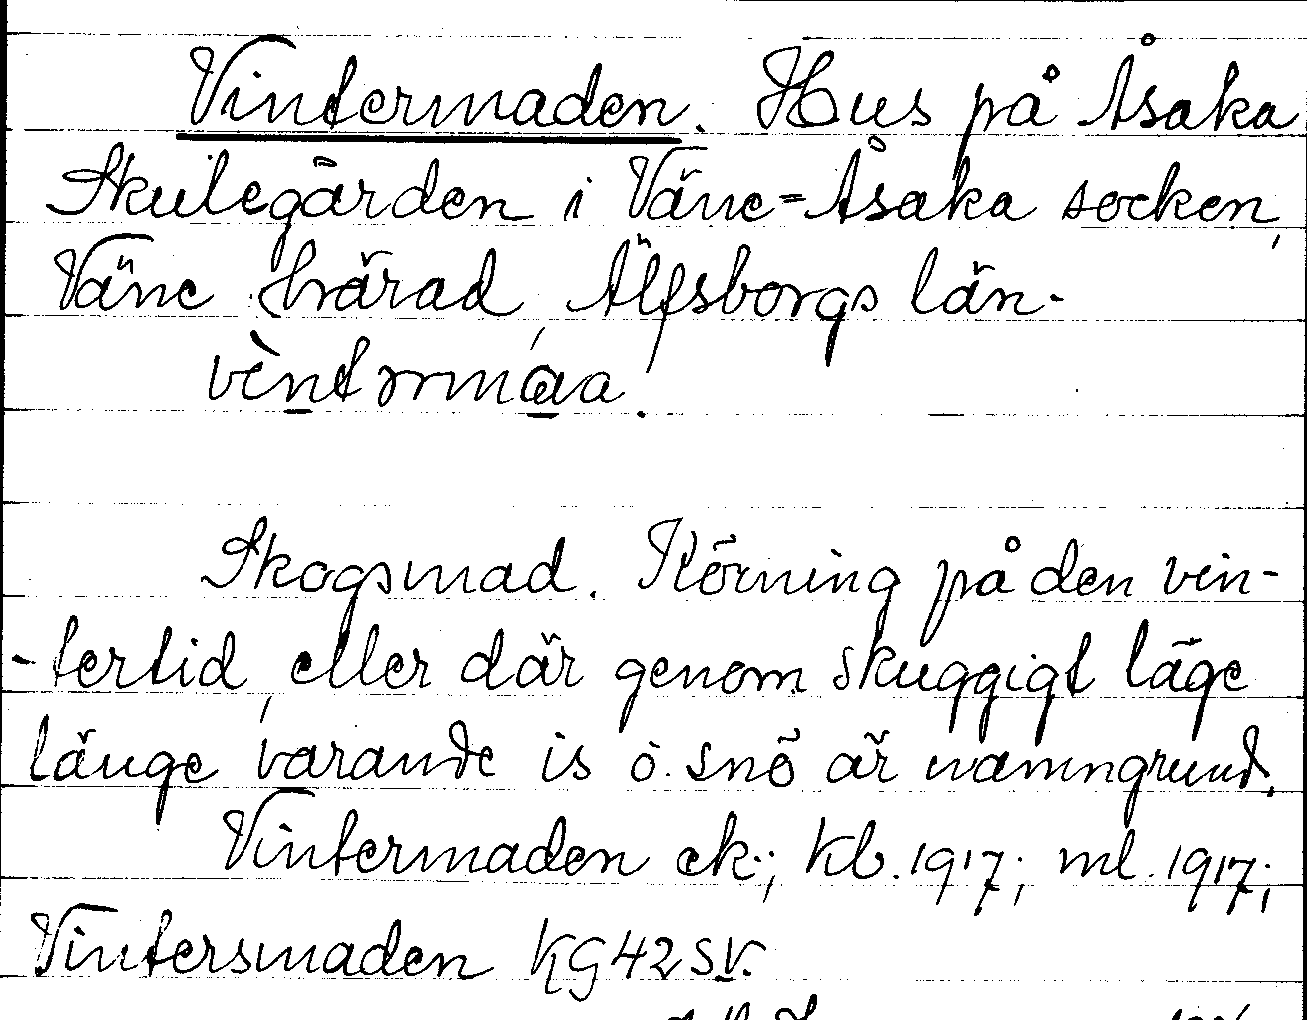 Vintermaden. Hus på Åsaka
Skulegården i Väne-Åsaka socken,
Väne härad, Älfsborgs län.
Skogsmad. Körning på den vin-
-tertid, eller där genom skuggigt läge
länge varande is o. snö är namngrund.
Vintermaden ek.; kb. 1917; ml. 1917;
Vintersmaden KG42SV.